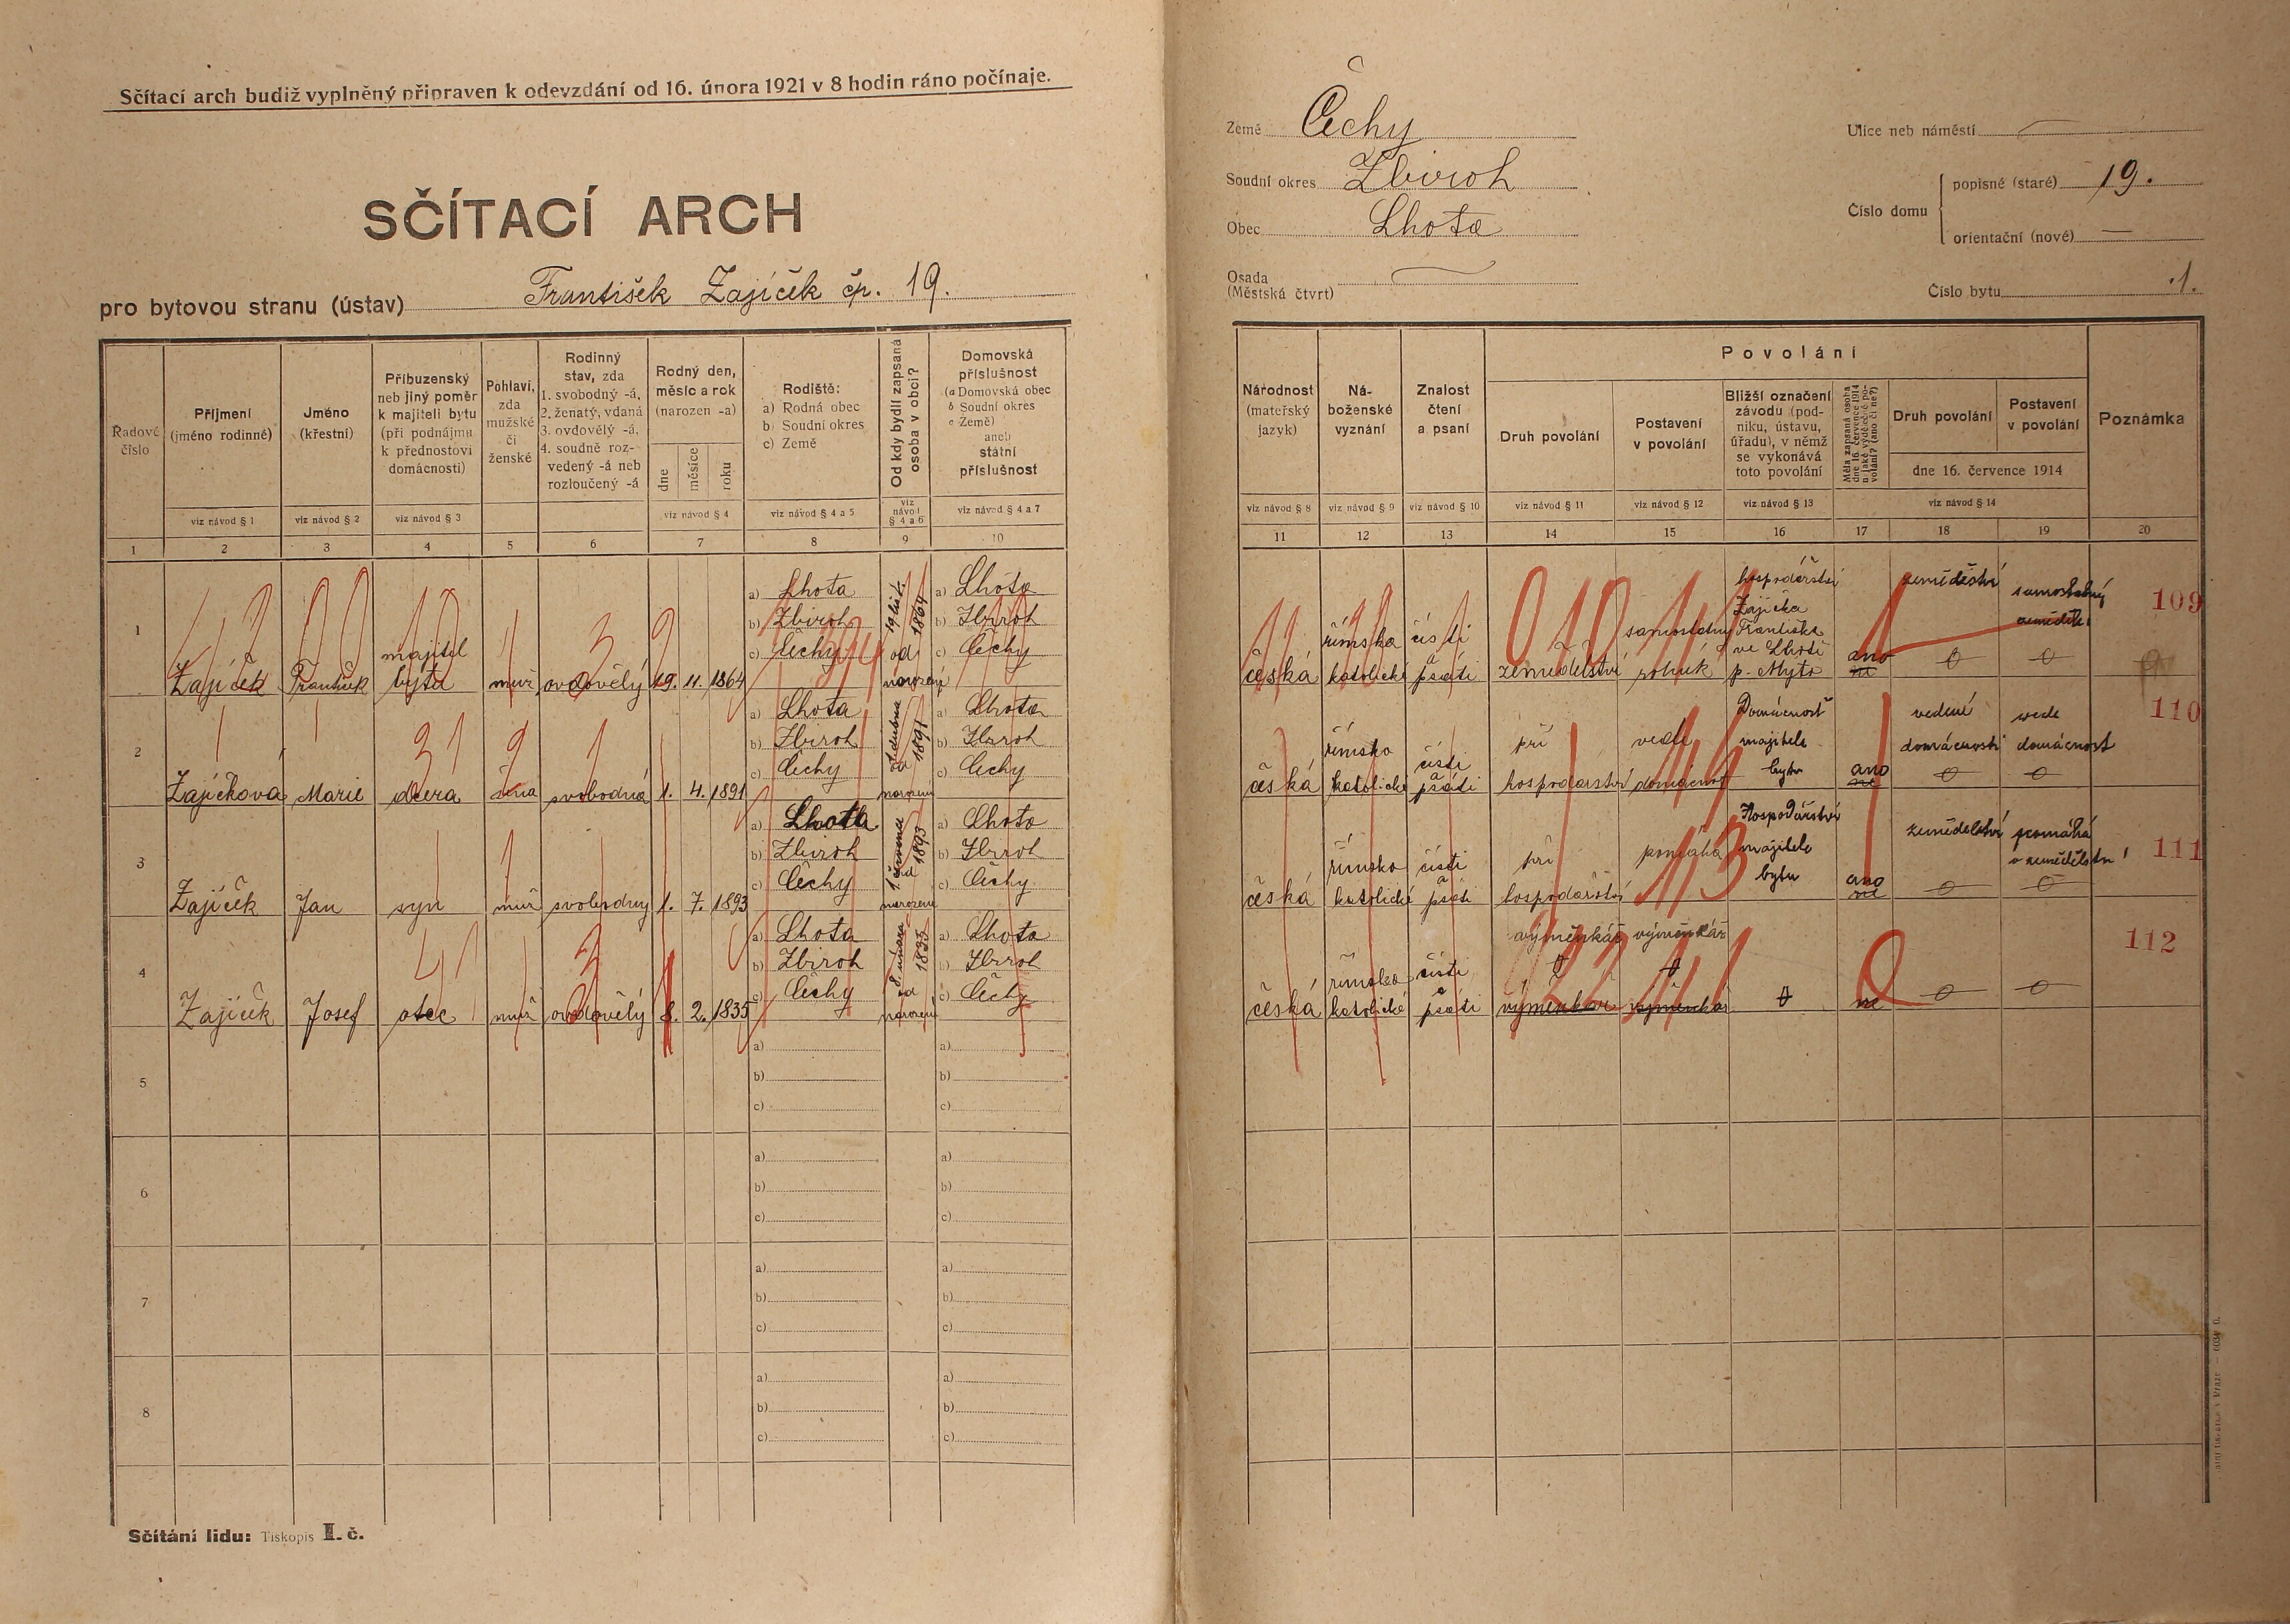 Sčítací arch budiž vyplněný připraven k odevzdání od 16. února 1921 v 8 hodin ráno počínaje.
SČÍTACÍ ARCH
pro bytovou stranu (ústav) František Zajíček čp. 19.
Radové číslo
Příjmení (jméno rodinné)
viz návod § 1
Jméno (křestní)
viz návod § 2
Příbuzenský neb jiný poměr k majiteli bytu (při podnájmu k přednostovi domácnosti)
viz návod § 3
Pohlaví, zda mužské či ženské
Rodinný stav, zda 1. svobodný -á, 2. ženatý, vdaná 3. ovdovělý -á, 4. soudně rozvedený -á neb rozloučený -á
Rodný den, měsíc a rok (narozen -a)
dne
měsíce
roku
viz návod § 4
Rodiště:
a) Rodná obec
b) Soudní okres
c) Země
viz návod § 4 a 5
Od kdy bydlí zapsaná osoba v obci?
viz návod § 4 a 6
Domovská příslušnost
(a Domovská obec
b Soudní okres
c Země)
aneb státní příslušnost
viz návod § 4 a 7
1 2 3 4 5 6 7 8 9 10
1 Zajíček František majitel bytu muž ovdovělý 19. 11. 1864
a) Lhota
b) Zbiroh
c) Čechy
19 list. 1864
od narození
a) Lhota
b) Zbiroh
c) Čechy
2 Zajíčková Marie dcera žena svobodná 1. 4. 1891
a) Lhota
b) Zbiroh
c) Čechy
1 dubna 1891
od narození
a) Lhota
b) Zbiroh
c) Čechy
3 Zajíček Jan syn muž svobodný 1. 7. 1893
a) Lhota
b) Zbiroh
c) Čechy
1 července 1893
od narození
a) Lhota
b) Zbiroh
c) Čechy
4 Zajíček Josef otec muž ovdovělý 8. 2. 1835
a) Lhota
b) Zbiroh
c) Čechy
8 února 1835
od narození
a) Lhota
b) Zbiroh
c) Čechy
5
a) a)
b) b)
c) c)
6
a) a)
b) b)
c) c)
7
a) a)
b) b)
c) c)
8
a) a)
b) b)
c) c)
Sčítání lidu: Tiskopis II. č.
Země Čechy
Soudní okres Zbiroh
Obec Lhota
Osada
(Městská čtvrt)
Ulice neb náměstí
Číslo domu
popisné (staré) 19.
orientační (nové) —
Číslo bytu 1.
Národnost (mateřský jazyk)
viz návod § 8
Náboženské vyznání
viz návod § 9
Znalost čtení a psaní
viz návod § 10
Povolání
Druh povolání
viz návod § 11
Postavení v povolání
viz návod § 12
Bližší označení závodu (podniku, ústavu, úřadu), v němž se vykonává toto povolání
viz návod § 13
Měla zapsaná osoba dne 16. července 1914 nějaké výdělečné povolání? (ano či ne?)
Druh povolání
Postavení v povolání
dne 16. července 1914
viz návod § 14
Poznámka
11 12 13 14 15 16 17 18 19 20
česká
římsko katolické
čísti a psáti
zemědělství
samostatný rolník
hospodářství
Zajíčka
Františka
ve Lhotě
p. Mýto
ano
ne
zemědělství
samostatný
zemědělec
109
česká
římsko katolické
čísti a psáti
při hospodářství
vede domácnost
Domácnost
majitele
bytu
ano
ne
vedení
domácnosti
vede
domácnost
110
česká
římsko katolické
čísti a psáti
při hospodářství
pomáhá
Hospodářství
majitele
bytu
ano
ne
zemědělství
pomáhá
v zemědělství
111
česká
římsko katolické
čísti a psáti
výměnkář výměnkář
výměnkář výměnkář
ne
112